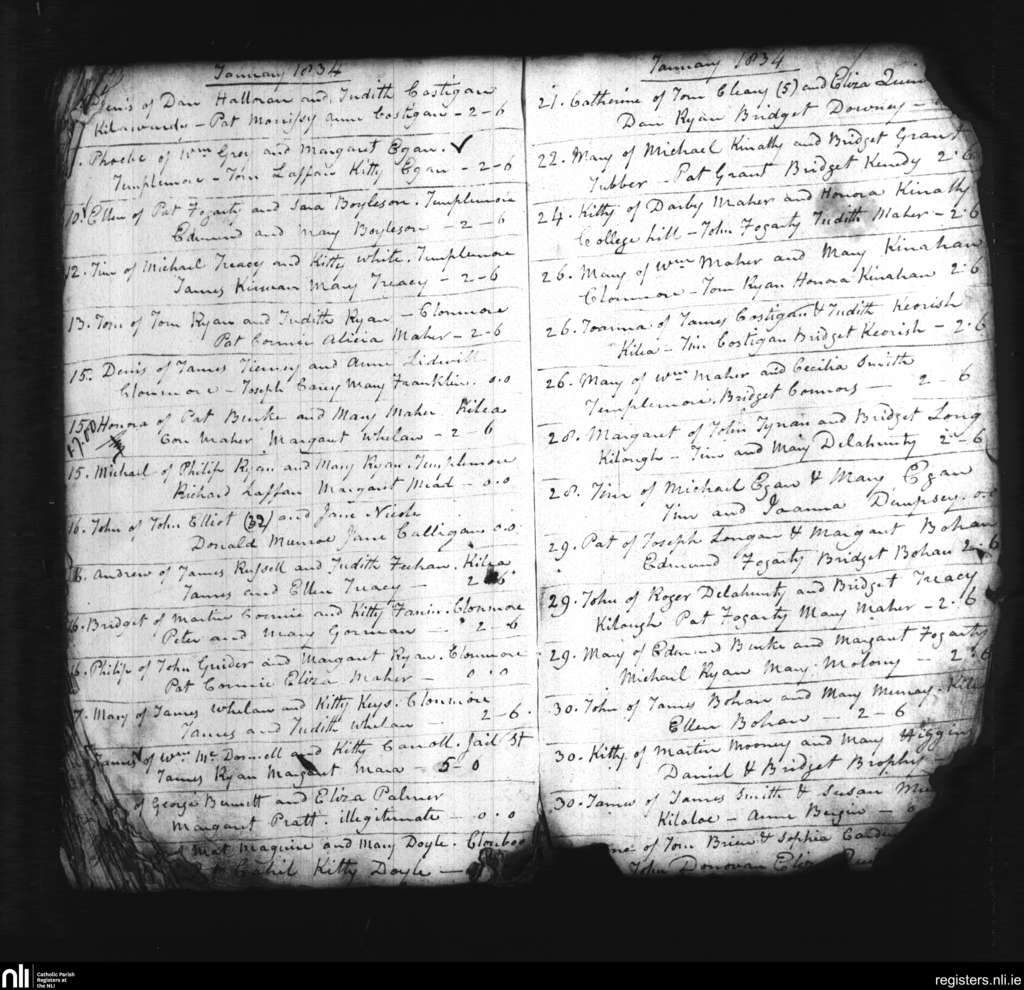 January 1834
Denis of Dan Halloran and Judith Costigan
Kilawardy - Pat Morrissy Anne Costigan - 2-6
. Phoebe of Wm Grey and Margaret Egan. ✓
Templemore - Tom Laffan Kitty Egan - 2-6
10. Ellen of Pat Fogarty and Sara Boyleson. Templemore
Edmund and Mary Boyleson - 2 - 6
12. Tim of Michael Treacy and Kitty White. Templemore
James Kirwan Mary Treacy - 2-6
13. Tom of Tom Ryan and Judith Ryan - Clonmore
Pat Cormic Alicia Maher - 2-6
15. Denis of James Tierney and Anne Lidwill
Clonmore - Joseph Carey Mary Franklin. 0.0
15. Honora of Pat Burke and Mary Maher Kilea
Con Maher Margaret Whelan - 2 6
15. Michael of Philip Ryan and Mary Ryan. Templemore
Richard Laffan Margaret Mead - 0.0
16. John of John Elliot (32) and Jane Nicole
Donald Munroe Jane Calligan 0.0
16. Andrew of James Russell and Judith Feehan. Kilea
James and Ellen Treacy - 2 6
16. Bridget of Martin Cormic and Kitty Fanin. Clonmore
Peter and Mary Gorman - 2-6
16. Philip of John Guider and Margaret Ryan. Clonmore
Pat Cormic Eliza Maher - 0.0
17. Mary of James Whelan and Kitty Keys. Clonmore
James and Judith Whelan - 2-6.
James of Wm Mc Donnell and Kitty Carroll. Jail St
James Ryan Margaret Mara 5-0
of George Bennett and Eliza Palmer
Margaret Pratt. illegitimate - 0.0
of Mat Maguire and Mary Doyle.
Cahil Kitty Doyle -
January 1834
21. Catherine of Tom Cleary (5) and Eliza Quin
Dan Ryan Bridget Downey -
22. Mary of Michael Kinally and Bridget Grant
Tubber - Pat Grant Bridget Kendy 2.6
24. Kitty of Darby Maher and Honora Kinally
College hill - John Fogarty Judith Maher - 2.6
26. Mary of Wm Maher and Mary Kinahan
Clonmore - Tom Ryan Honora Kinahan 2.6
26. Joanna of James Costigan & Judith Keorish
Kilea - Tim Costigan Bridget Keorish - 2.6
26. Mary of Wm Maher and Cecilia Smith
Templemore. Bridget Connors - 2 - 6
28. Margaret of John Tynan and Bridget Long
Kilough - Tim and Mary Delahunty 2 - 6
28. Tim of Michael Egan & Mary Egan
Tim and Joanna Dempsey. 0.0
29. Pat of Joseph Longan & Margaret Bohan
Edmund Fogarty Bridget Bohan 2.6
29. John of Roger Delahunty and Bridget Treacy
Kilough Pat Fogarty Mary Maher - 2.6
29. Mary of Edmund Burke and Margaret Fogarty
Michael Ryan Mary Molony - 2.6
30. John of James Bohan and Mary Murray.
Ellen Bohan - 2 - 6
30. Kitty of Martin Mooney and Mary Higgins
Daniel & Bridget Brophy
30. James of James Smith & Susan
Kilaloe - Anne Bergin -
of Tom Brien & Sophia
John Donovan
nli
Catholic Parish
Registers at
the NLI
registers.nli.ie